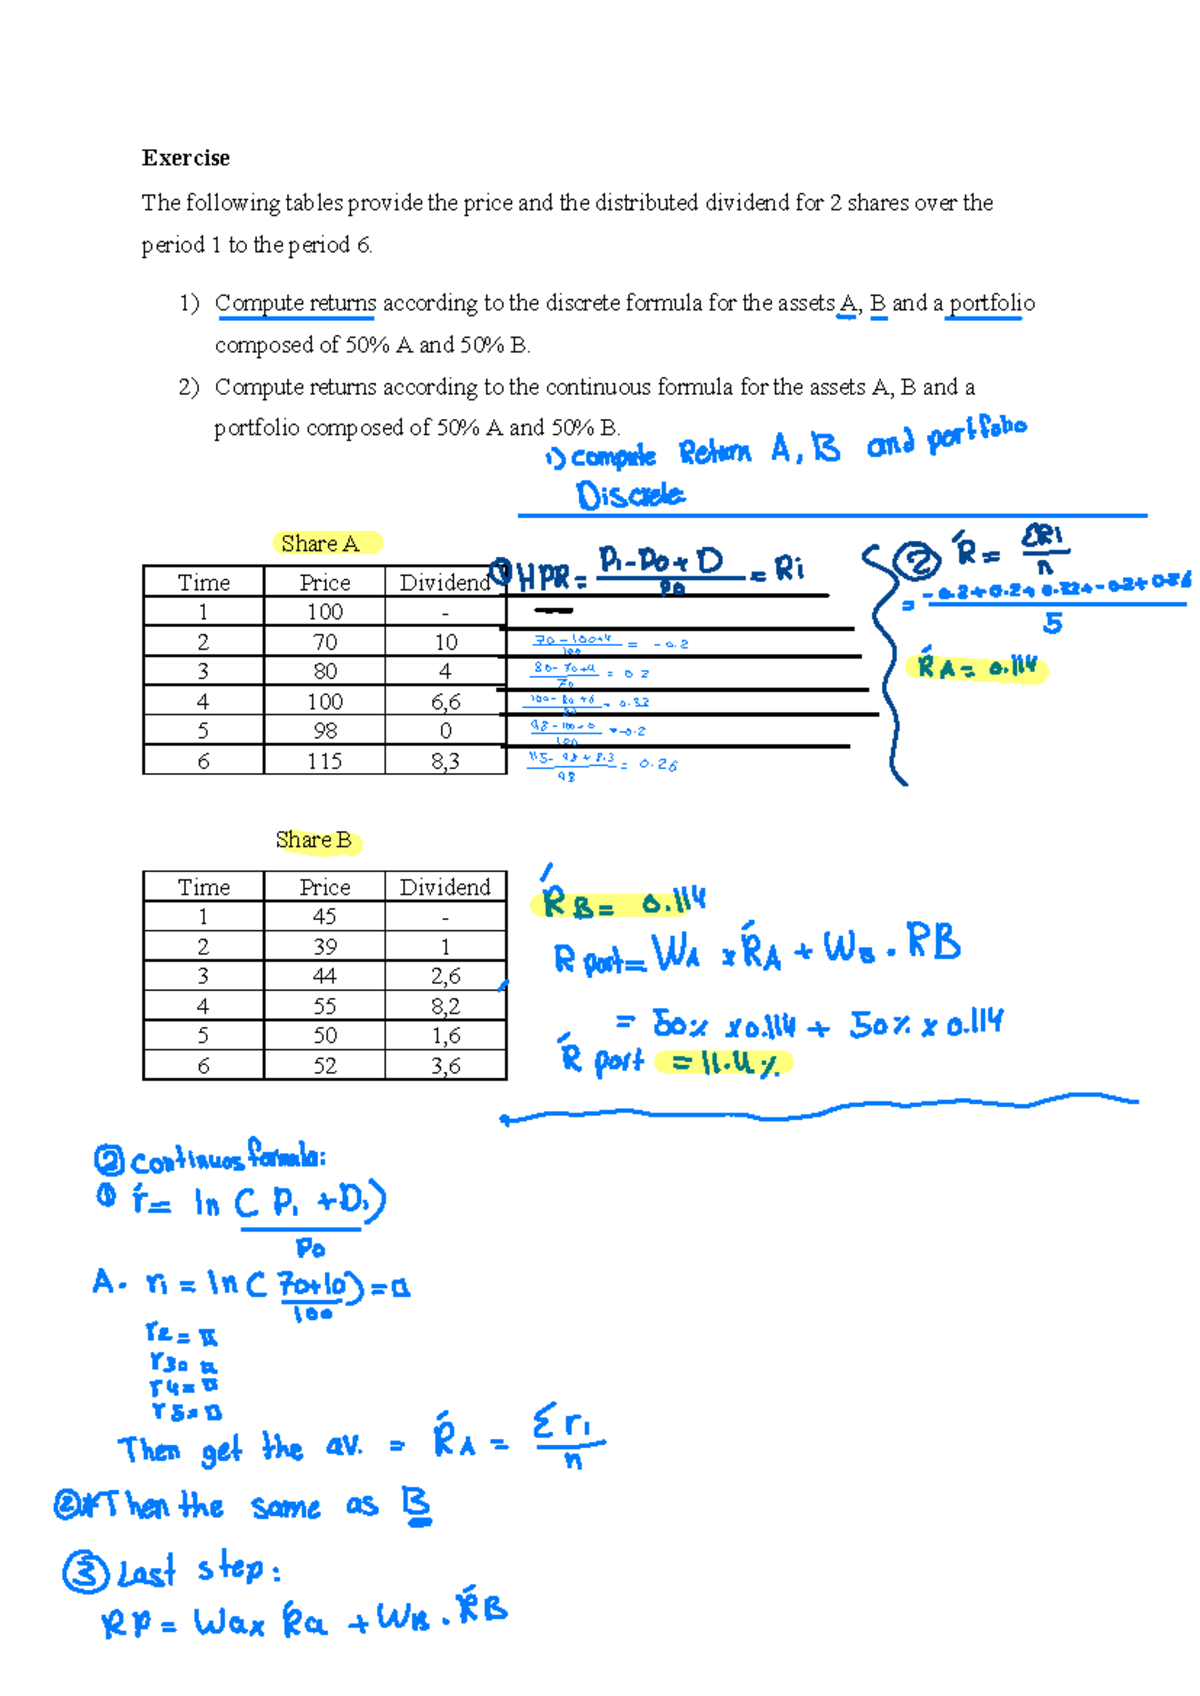 Exercise
The following tables provide the price and the distributed dividend for 2 shares over the
period 1 to the period 6.
1) Compute returns according to the discrete formula for the assets A, B and a portfolio
composed of 50% A and 50% B.
2) Compute returns according to the continuous formula for the assets A, B and a
portfolio composed of 50% A and 50% B.
1) compute Return A, B and portfolio
Discrete
Share A
Time Price Dividend
1 100 -
2 70 10
3 80 4
4 100 6,6
5 98 0
6 115 8,3
① HPR = P1-P0+D / P0 = Ri
—
70-100+4 / 100 = -0.2
80-70+4 / 70 = 0.2
100-80+6 / = 0.32
98-100-0 / 100 = -0.2
115-98+8.3 / 98 = 0.26
② Ŕ = ΣRi / n
= -0.2+0.2+0.32+-0.2+0.26 / 5
ŔA = 0.114
Share B
Time Price Dividend
1 45 -
2 39 1
3 44 2,6
4 55 8,2
5 50 1,6
6 52 3,6
ŔB = 0.114
R port = WA x ŔA + WB . RB
= 50% x 0.114 + 50% x 0.114
Ŕ port = 11.4%
② continuos formula:
① ŕ = ln ( P1 + D1 ) / P0
A. r1 = ln ( 70+10 / 100 ) = a
r2 =
r3
r4 =
r5 =
Then get the av. = ŔA = Σ r1 / n
②* Then the same as B
③ Last step:
RP = Wax Ŕa + WB . ŔB